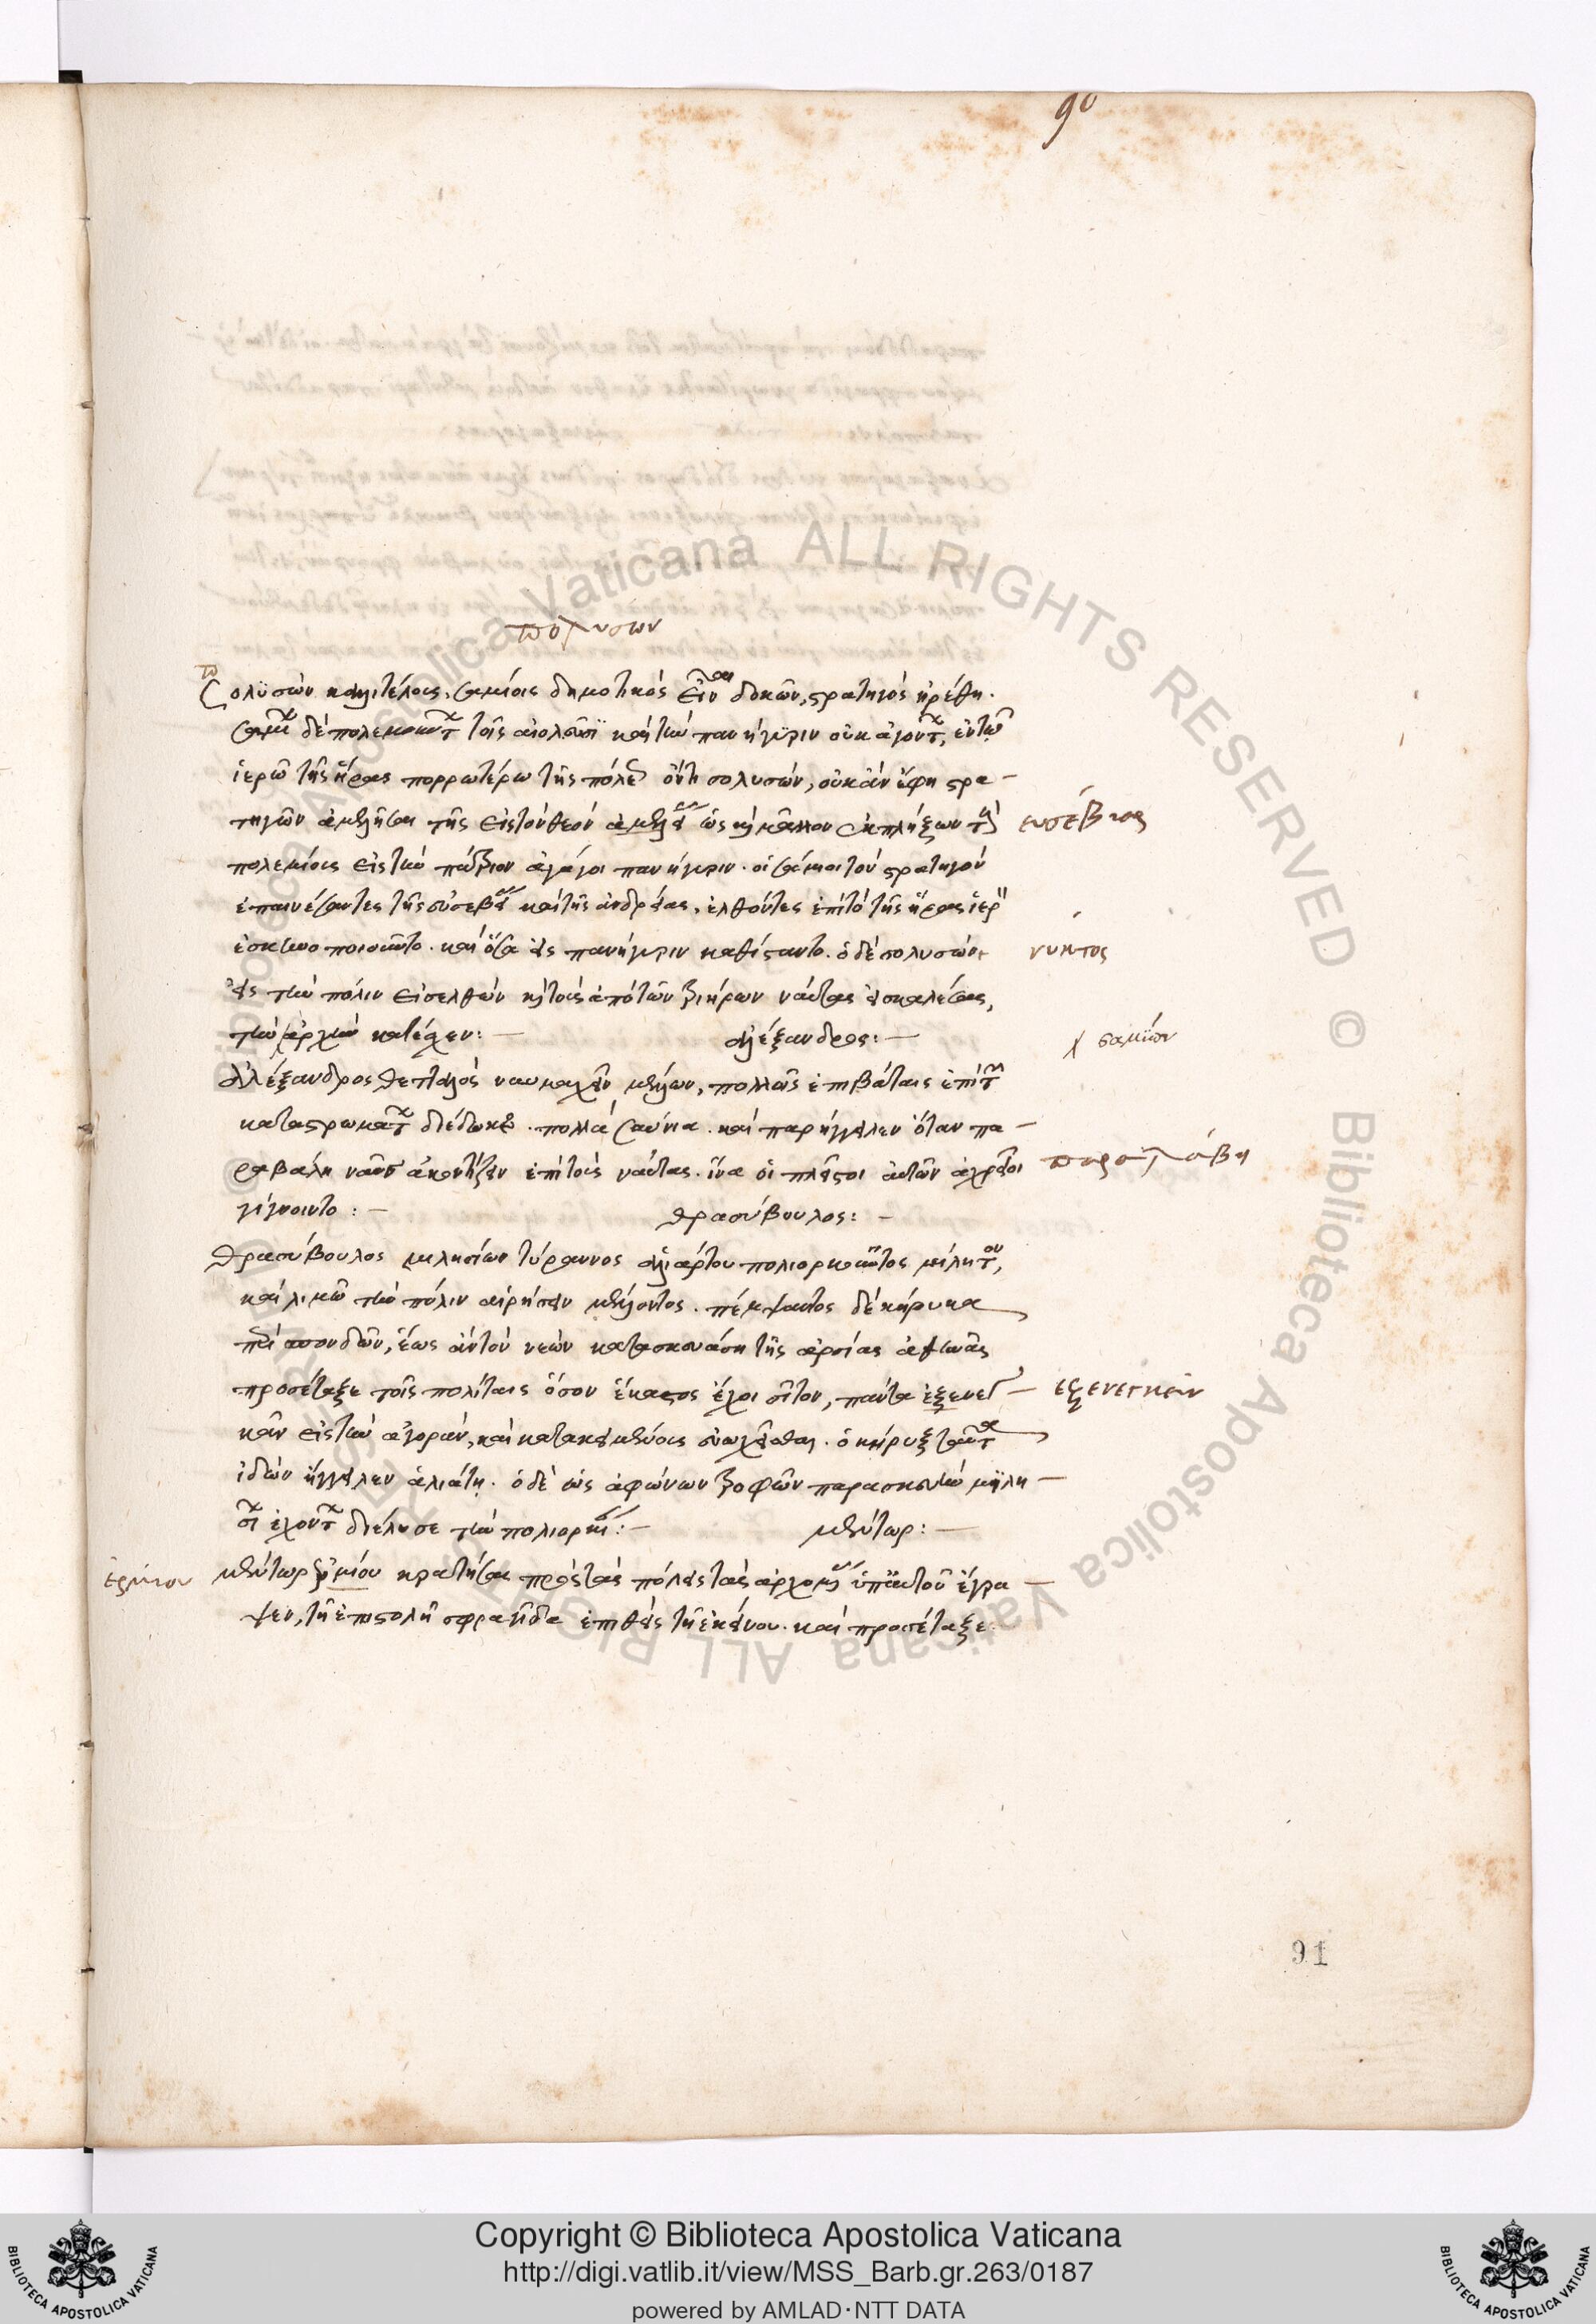 90
πολυσων
Σολϋσών καλιτέλους, σαμίοις δημοτικὸς εἶναι δοκῶν, στρατηγὸς ἡρέθη.
δὲ πολεμοῦντ τοῖς αἰολεῦσϊ καὶ τὴν πανήγϋριν οὐκ ἀγοντ, ἐν τῶ
ἱερῶ τῆς ἥρας πορρωτέρω τῆς πόλε ὄντι σολυσών, οὐκ ἂν ἔφη στρα –
τηγῶν ἀμελῆσαι τῆς εἰς τὸν θεόν ὡς καὶ μᾶλλον ἐκπλήξων τ
πολεμίοις εἰς τὴν πάτριον ἀγάγοι πανήγυριν. οἱ σάμιοι τὸν στρατηγὸν
ἐπαινέσαντες τῆς εὐσεβ καὶ τῆς ἀνδρείας, ἐλθόντες ἐπὶ τὸ τῆς ἥρας ἱερ
ἐσκηνοποιοῦντο. καὶ ὅσα εἰς πανήγυριν καθίσαντο. ὁ δὲ σολυσὼν
εἰς τὴν πόλιν εἰσελθὼν καὶ τοὺς ἀπὸ τῶν τριήρων ναύτας εἰσκαλέσας,
τὴν ἀρχὴν κατέσχεν: – ἀλέξανδρος: –
Ἀλέξανδρος θετταλὸς ναυμαχεῖν μέλλων, πολλοῖς ἐπιβάταις ἐπὶ τ
καταστρωματ διέδωκε. πολλὰ σαύνια. καὶ παρήγγειλεν ὅταν πα –
ραβάλη ναῦς ἀκοντίζειν ἐπὶ τοὺς ναύτας. ἵνα οἱ πλεῖστοι αὐτῶν ἀχρεῖοι
γίγνοιντο: – θρασύβουλος: –
Θρασύβουλος μιλησίων τύραννος ἀλιάρτου πολιορκοῦντος μίλητου,
καὶ λιμῶ τὴν πόλιν αἱρήσειν μέλλοντος. πέμψαντος δὲ κήρυκα
περὶ σπονδῶν, ἕως ἂν τὸν νεὼν κατασκευάση τῆς ἀρσίας ἀθηνᾶς
προσέταξε τοῖς πολίταις ὅσον ἕκαστος ἔχοι σῖτον, πάντα ἐξενεγ –
κεῖν εἰς τὴν ἀγορὰν, καὶ κατακειμένους εὐωχεῖσθαι. ὁ κήρυξ ταῦτα
ἰδὼν ἤγγειλεν ἁλιάτη. ὁ δὲ ὡς ἀφώνων τροφῶν παρασκευὴν μϊλη –
σι ἐχοντ διέλυσε τὴν πολιορκι: – μέντωρ: –
μέντωρ κρατῆσαι πρὸς τὰς πόλεις τὰς ἀρχομ ὑπ' αὐτοῦ ἔγρα –
ψεν, τῆ ἐπιστολῆ σφραγῖδα ἐπιθεὶς τὴν ἐκείνου. καὶ προσέταξε
ευσέβειας
νυκτος
χ σαμϊων
παραλάβη
εξενεγκεῖν
ἑρμίου
91
Copyright © Biblioteca Apostolica Vaticana
http://digi.vatlib.it/view/MSS_Barb.gr.263/0187
powered by AMLAD·NTT DATA
BIBLIOTECA APOSTOLICA VATICANA
BIBLIOTECA APOSTOLICA VATICANA
Biblioteca Apostolica Vaticana ALL RIGHTS RESERVED © Biblioteca Apostolica Vaticana ALL RIGHTS RESERVED ©